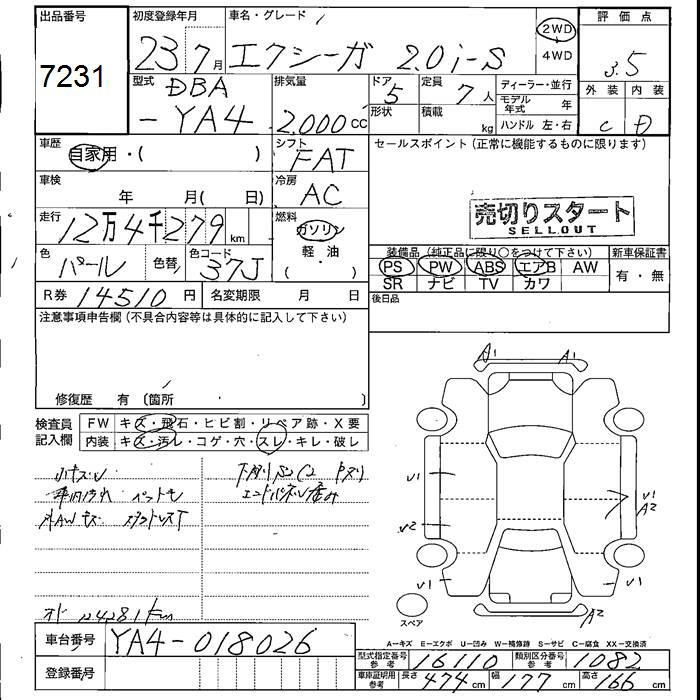 出品番号 初度登録年月 車名・グレード 評価点
7231 23 7月 エクシーガ 2.0i-S 2WD 4WD 3.5
型式 DBA -YA4 排気量 2.000CC ドア 5 定員 7人 ディーラー・並行
形状 積載 kg モデル年式 年 ハンドル 左・右
外装 内装
C D
車歴 自家用・( ) シフト FAT セールスポイント(正常に機能するものに限ります)
車検 年 月( 日) 冷房 AC
売切りスタート
SELLOUT
走行 12万4千279km 燃料 ガソリン 軽・油 ( ・ )
色 パール 色替 色コード 37J
装備品(純正品に限り○をつけて下さい) 新車保証書
PS PW ABS エアB AW 有・無
SR ナビ TV カワ
R券 14510円 名変期限 月 日 後日品
注意事項申告欄(不具合内容等は具体的に記入して下さい)
修復歴 有 (箇所 )
検査員記入欄 FW キズ・飛石・ヒビ割・リペア跡・X要
内装 キズ・汚レ・コゲ・穴・スレ・キレ・破レ
A1 A1
小キズU
下廻りS2C2
エンドパネル
V1 V1 A2
V2
V1 V1
A2
スペア
A-キズ E-エクボ U-凹み W-補修跡 S-サビ C-腐食 XX-交換済
車台番号 YA4-018026
型式指定番号 参考 16110 類別区分番号 参考 1082
登録番号
車庫証明用 参考 長さ 474cm 幅 177cm 高さ 166cm